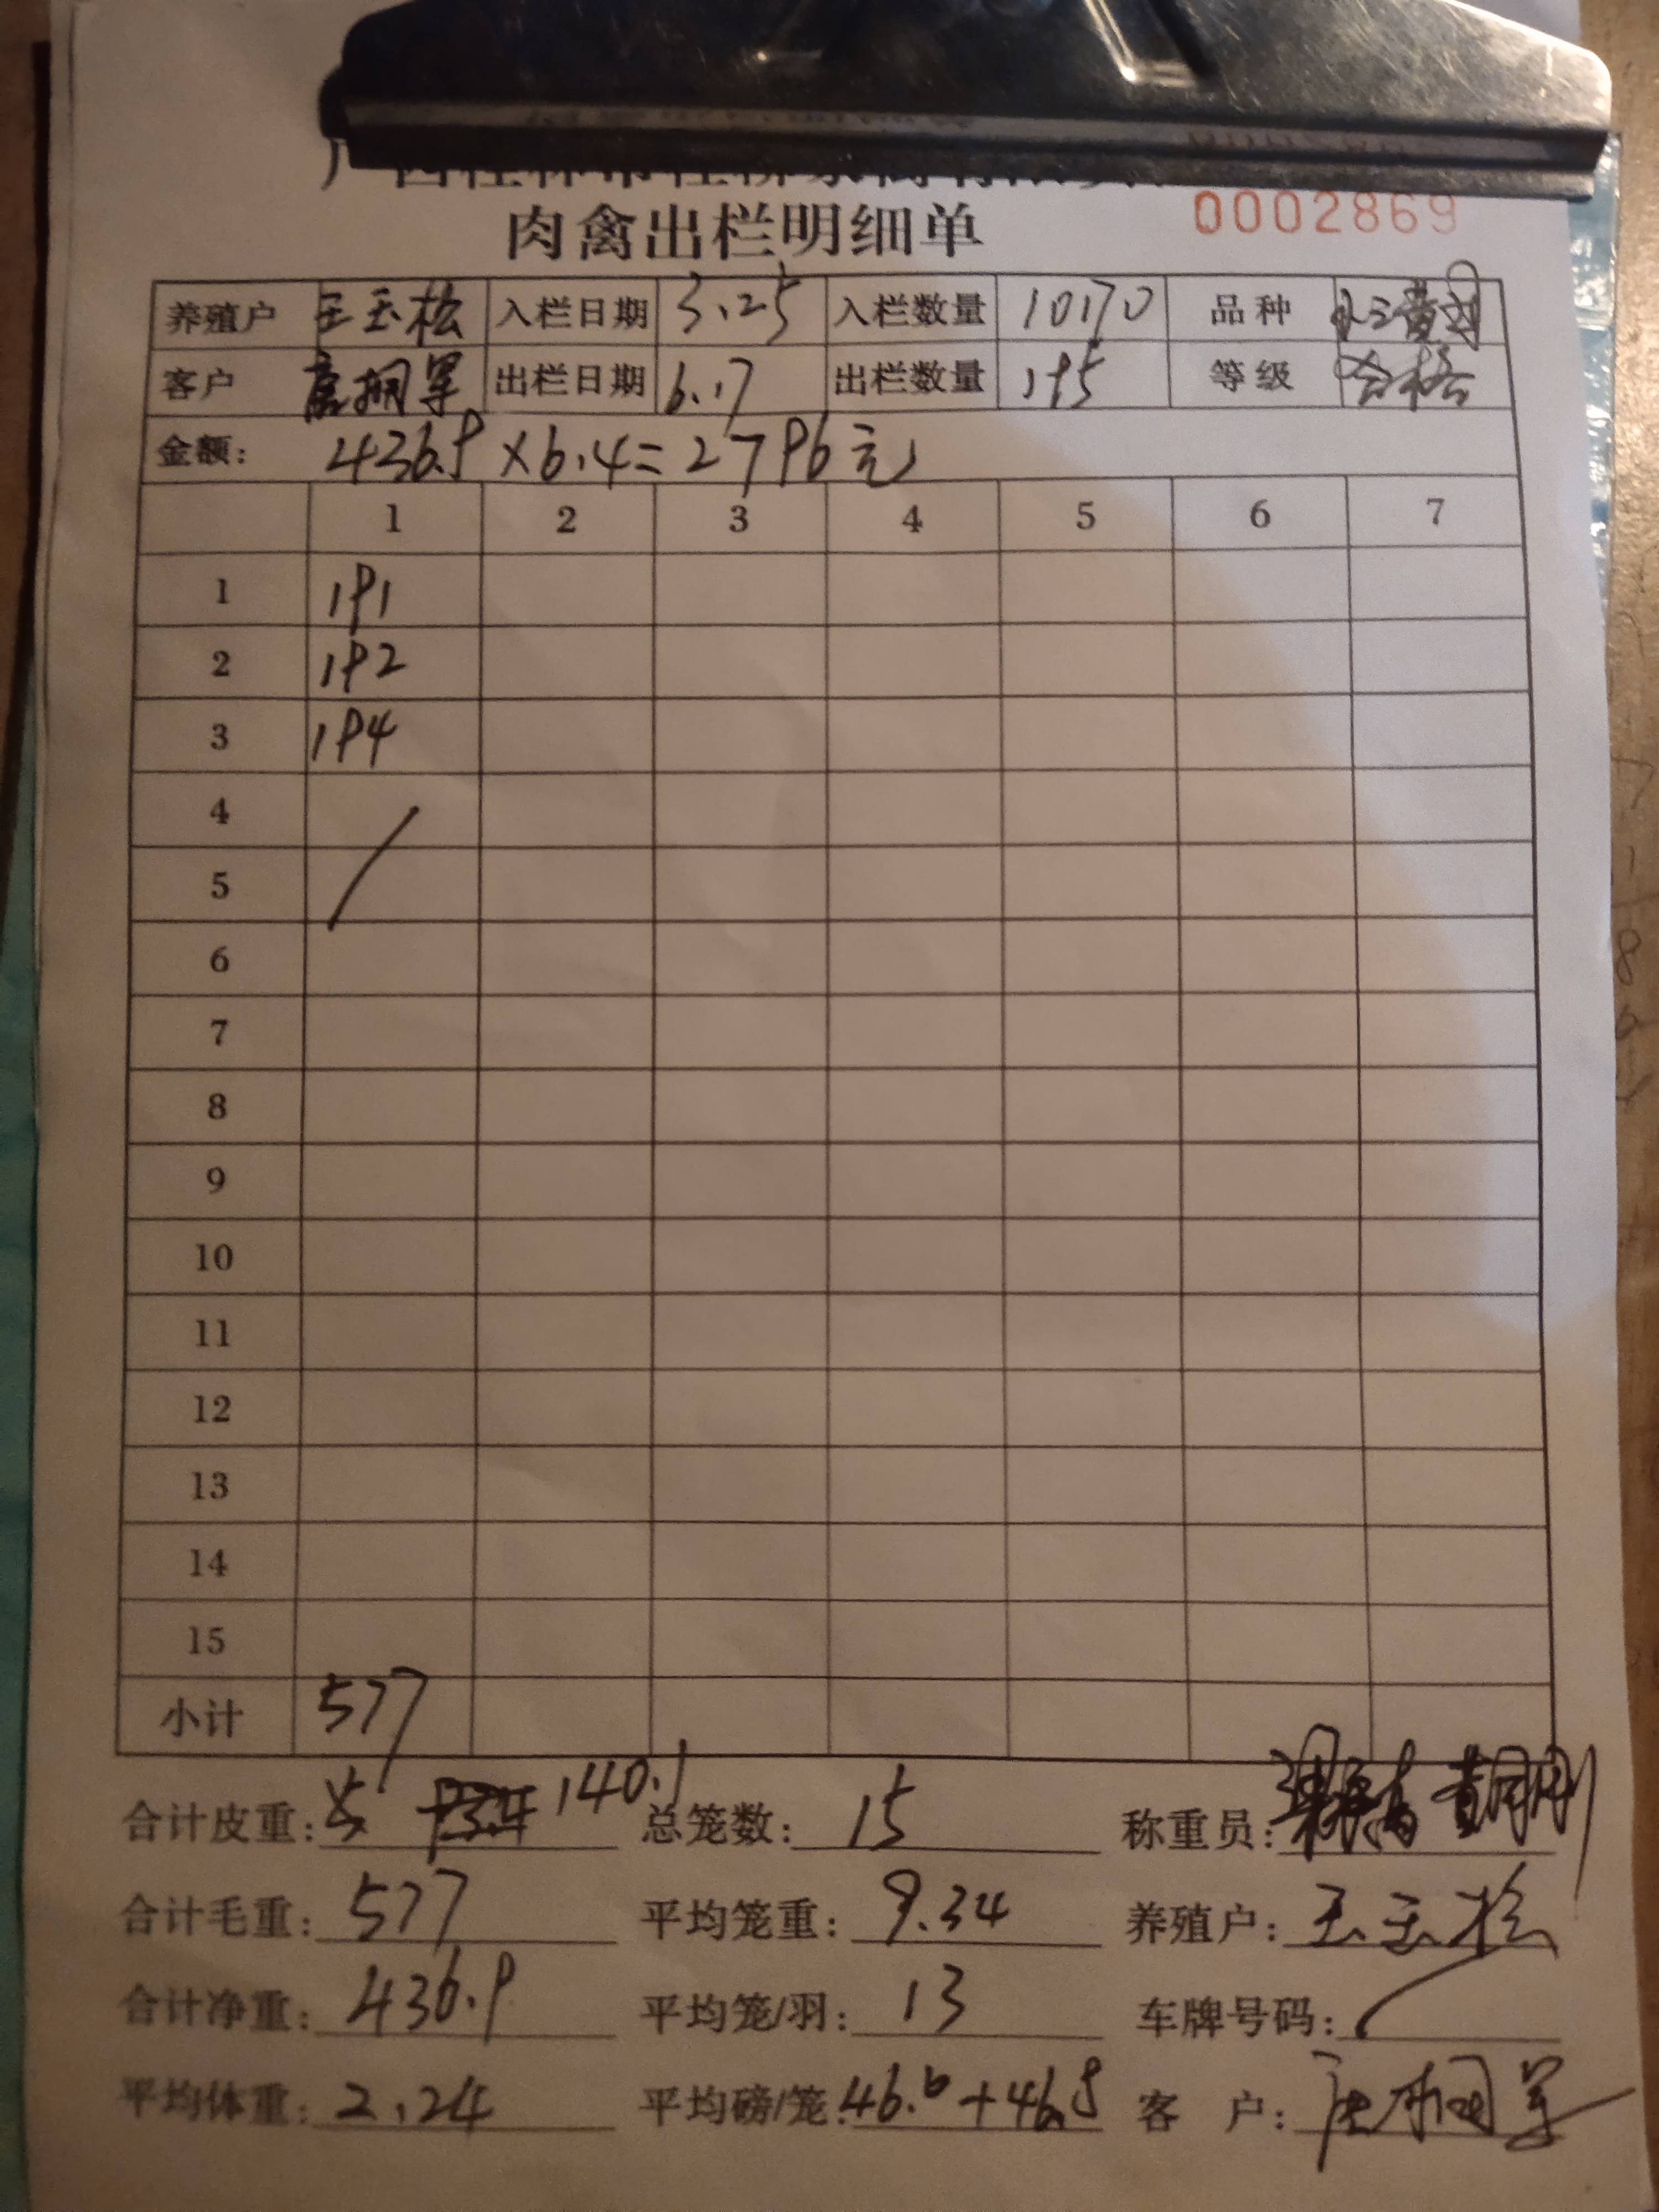 肉禽出栏明细单 0002869
养殖户 王玉松 入栏日期 3.25 入栏数量 10170 品种
客户 出栏日期 6.17 出栏数量 195 等级 合格
金额： 436.9×6.4=2796元
1 2 3 4 5 6 7
1 191
2 192
3 194
4
5
6
7
8
9
10
11
12
13
14
15
小计 577
合计皮重： 140.1 总笼数： 15 称重员：
合计毛重： 577 平均笼重： 9.34 养殖户： 王玉松
合计净重： 436.9 平均笼/羽： 13 车牌号码：
平均体重： 2.24 平均磅/笼： 客 户：